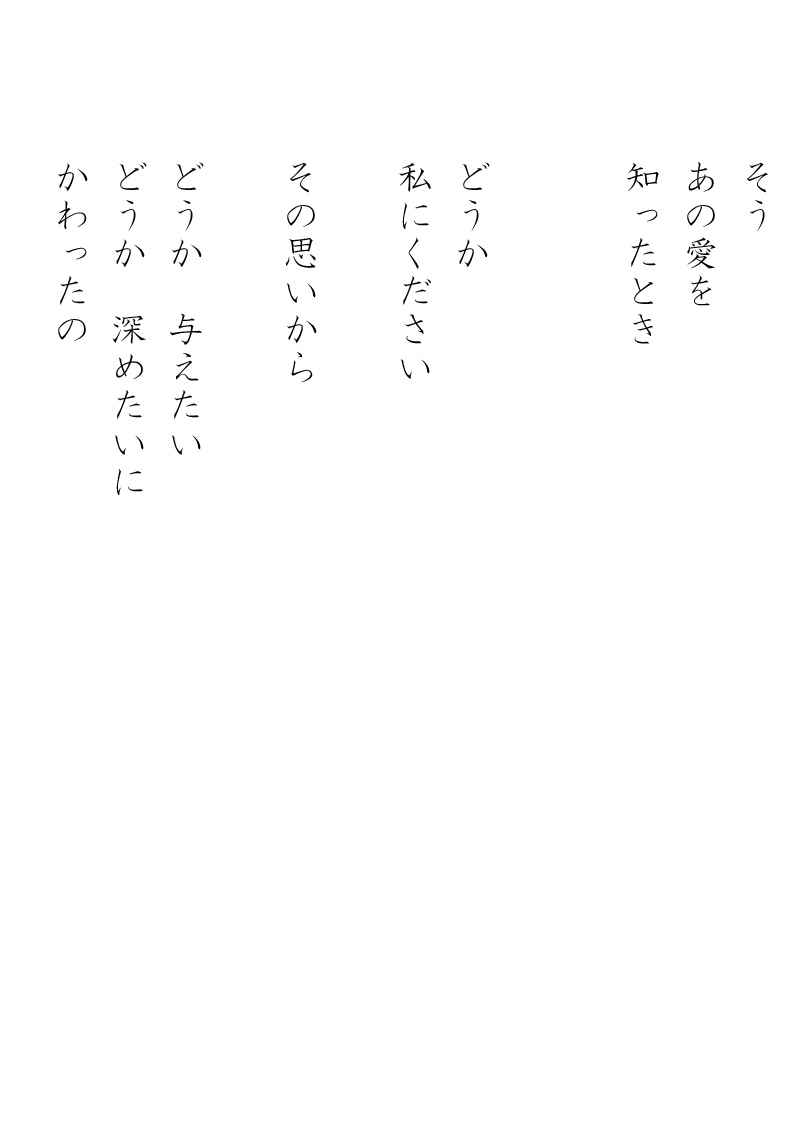 そう
あの愛を
知ったとき
どうか
私にください
その思いから
どうか　与えたい
どうか　深めたいに
かわったの